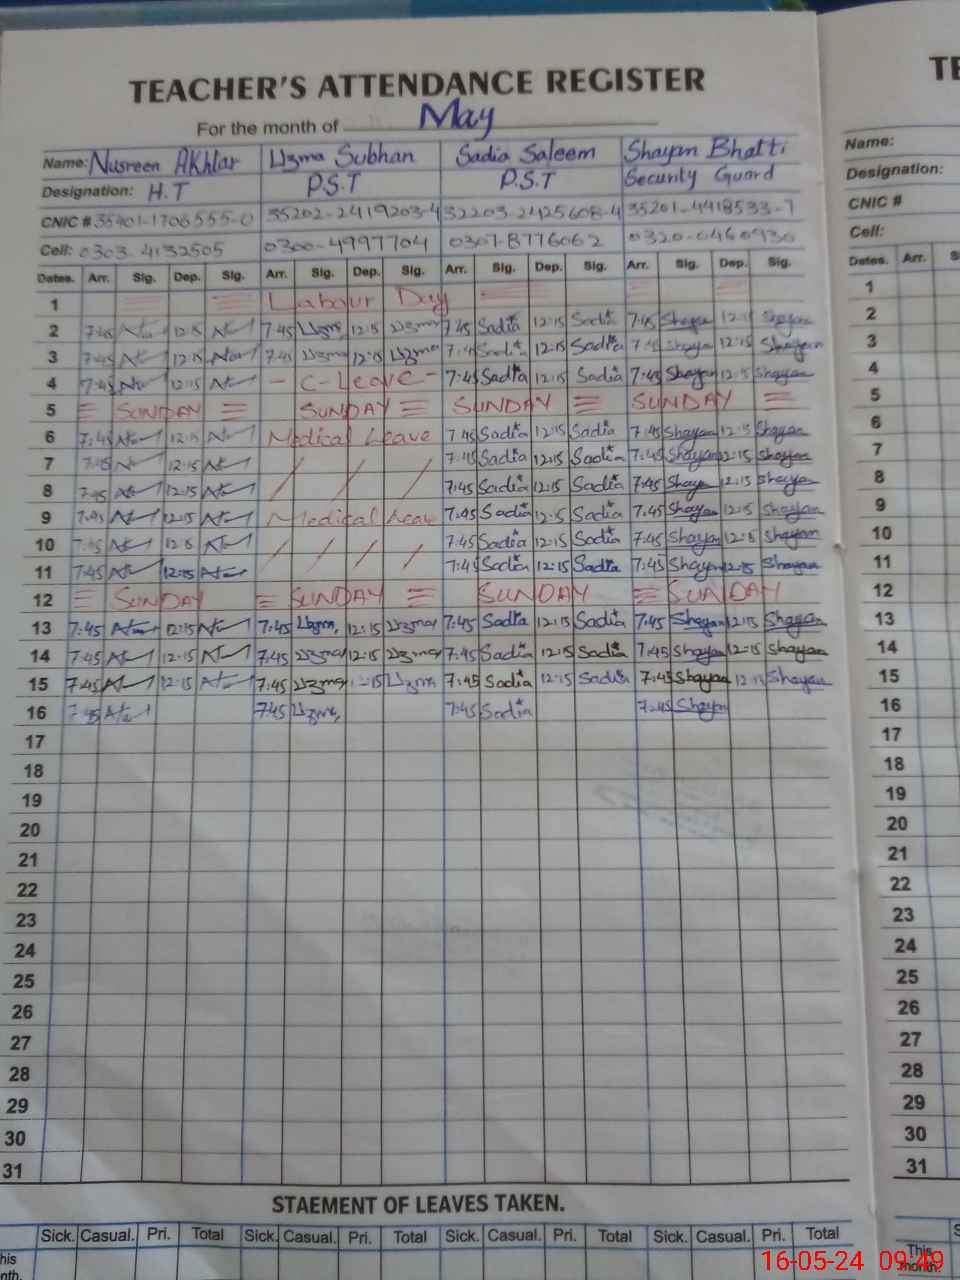 TEACHER'S ATTENDANCE REGISTER
For the month of May
Name: Nusreen Akhtar Uzma Subhan Sadia Saleem Shayan Bhatti
Designation: H.T P.S.T P.S.T Security Guard
CNIC # 35401-1706555-0 35202-2419203-4 32203-2425608-4 35201-4418533-7
Cell: 0303-4132505 0300-4997704 0307-8776062
Dates. Arr. Sig. Dep. Sig. Arr. Sig. Dep. Sig. Arr. Sig. Dep. Sig. Arr. Sig. Dep. Sig.
1 Labour Day
2 7:45 12:15 7:45 Uzma 12:15 Uzma 7:45 Sadia 12:15 Sadia 7:45 Shayan 12:15 Shayan
3 7:45 12:15 7:45 Uzma 12:15 Uzma 7:45 Sadia 12:15 Sadia 7:45 Shayan 12:15 Shayan
4 7:45 12:15 - C-Leave - 7:45 Sadia 12:15 Sadia 7:45 Shayan 12:15 Shayan
5 SUNDAY SUNDAY SUNDAY SUNDAY
6 7:45 12:15 Medical Leave 7:45 Sadia 12:15 Sadia 7:45 Shayan 12:15 Shayan
7 7:45 12:15 / / / 7:45 Sadia 12:15 Sadia 7:45 Shayan 12:15 Shayan
8 7:45 12:15 / / / 7:45 Sadia 12:15 Sadia 7:45 Shayan 12:15 Shayan
9 7:45 12:15 Medical Leav 7:45 Sadia 12:15 Sadia 7:45 Shayan 12:15 Shayan
10 7:45 12:15 / / / / 7:45 Sadia 12:15 Sadia 7:45 Shayan 12:15 Shayan
11 7:45 12:15 7:45 Sadia 12:15 Sadia 7:45 Shayan 12:15 Shayan
12 SUNDAY SUNDAY SUNDAY SUNDAY
13 7:45 12:15 7:45 Uzma 12:15 Uzma 7:45 Sadia 12:15 Sadia 7:45 Shayan 12:15 Shayan
14 7:45 12:15 7:45 Uzma 12:15 Uzma 7:45 Sadia 12:15 Sadia 7:45 Shayan 12:15 Shayan
15 7:45 12:15 7:45 Uzma 12:15 Uzma 7:45 Sadia 12:15 Sadia 7:45 Shayan 12:15 Shayan
16 7:45 7:45 Uzma 7:45 Sadia 7:45 Shayan
17
18
19
20
21
22
23
24
25
26
27
28
29
30
31
STAEMENT OF LEAVES TAKEN.
Sick. Casual. Pri. Total Sick. Casual. Pri. Total Sick. Casual. Pri. Total Sick. Casual. Pri. Total
his
nth.
TE
Name:
Designation:
CNIC #
Cell:
Dates. Arr. S
1
2
3
4
5
6
7
8
9
10
11
12
13
14
15
16
17
18
19
20
21
22
23
24
25
26
27
28
29
30
31
S
This
month.
16-05-24 09:49